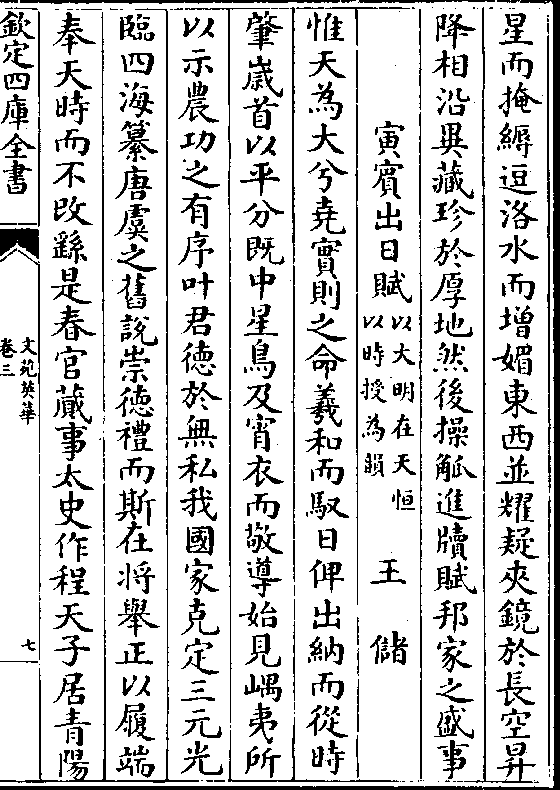 星而掩縟逗洛水而增媚東西並耀疑夾鏡於長空昇
降相沿異藏珍於厚地然後操觚進牘賦邦家之盛事
寅賓出日賦以大明在天恒以時授為韻 王儲
惟天為大兮堯實則之命羲和而馭日俾出納而從時
肇嵗首以平分既中星鳥及宵衣而敬導始見嵎夷所
以示農功之有序叶君徳於無私我國家克定三元光
臨四海纂唐虞之舊說崇徳禮而斯在将舉正以履端
奉天時而不改繇是春官蕆事太史作程天子居青陽
欽定四庫全書
文苑英華
卷三
七